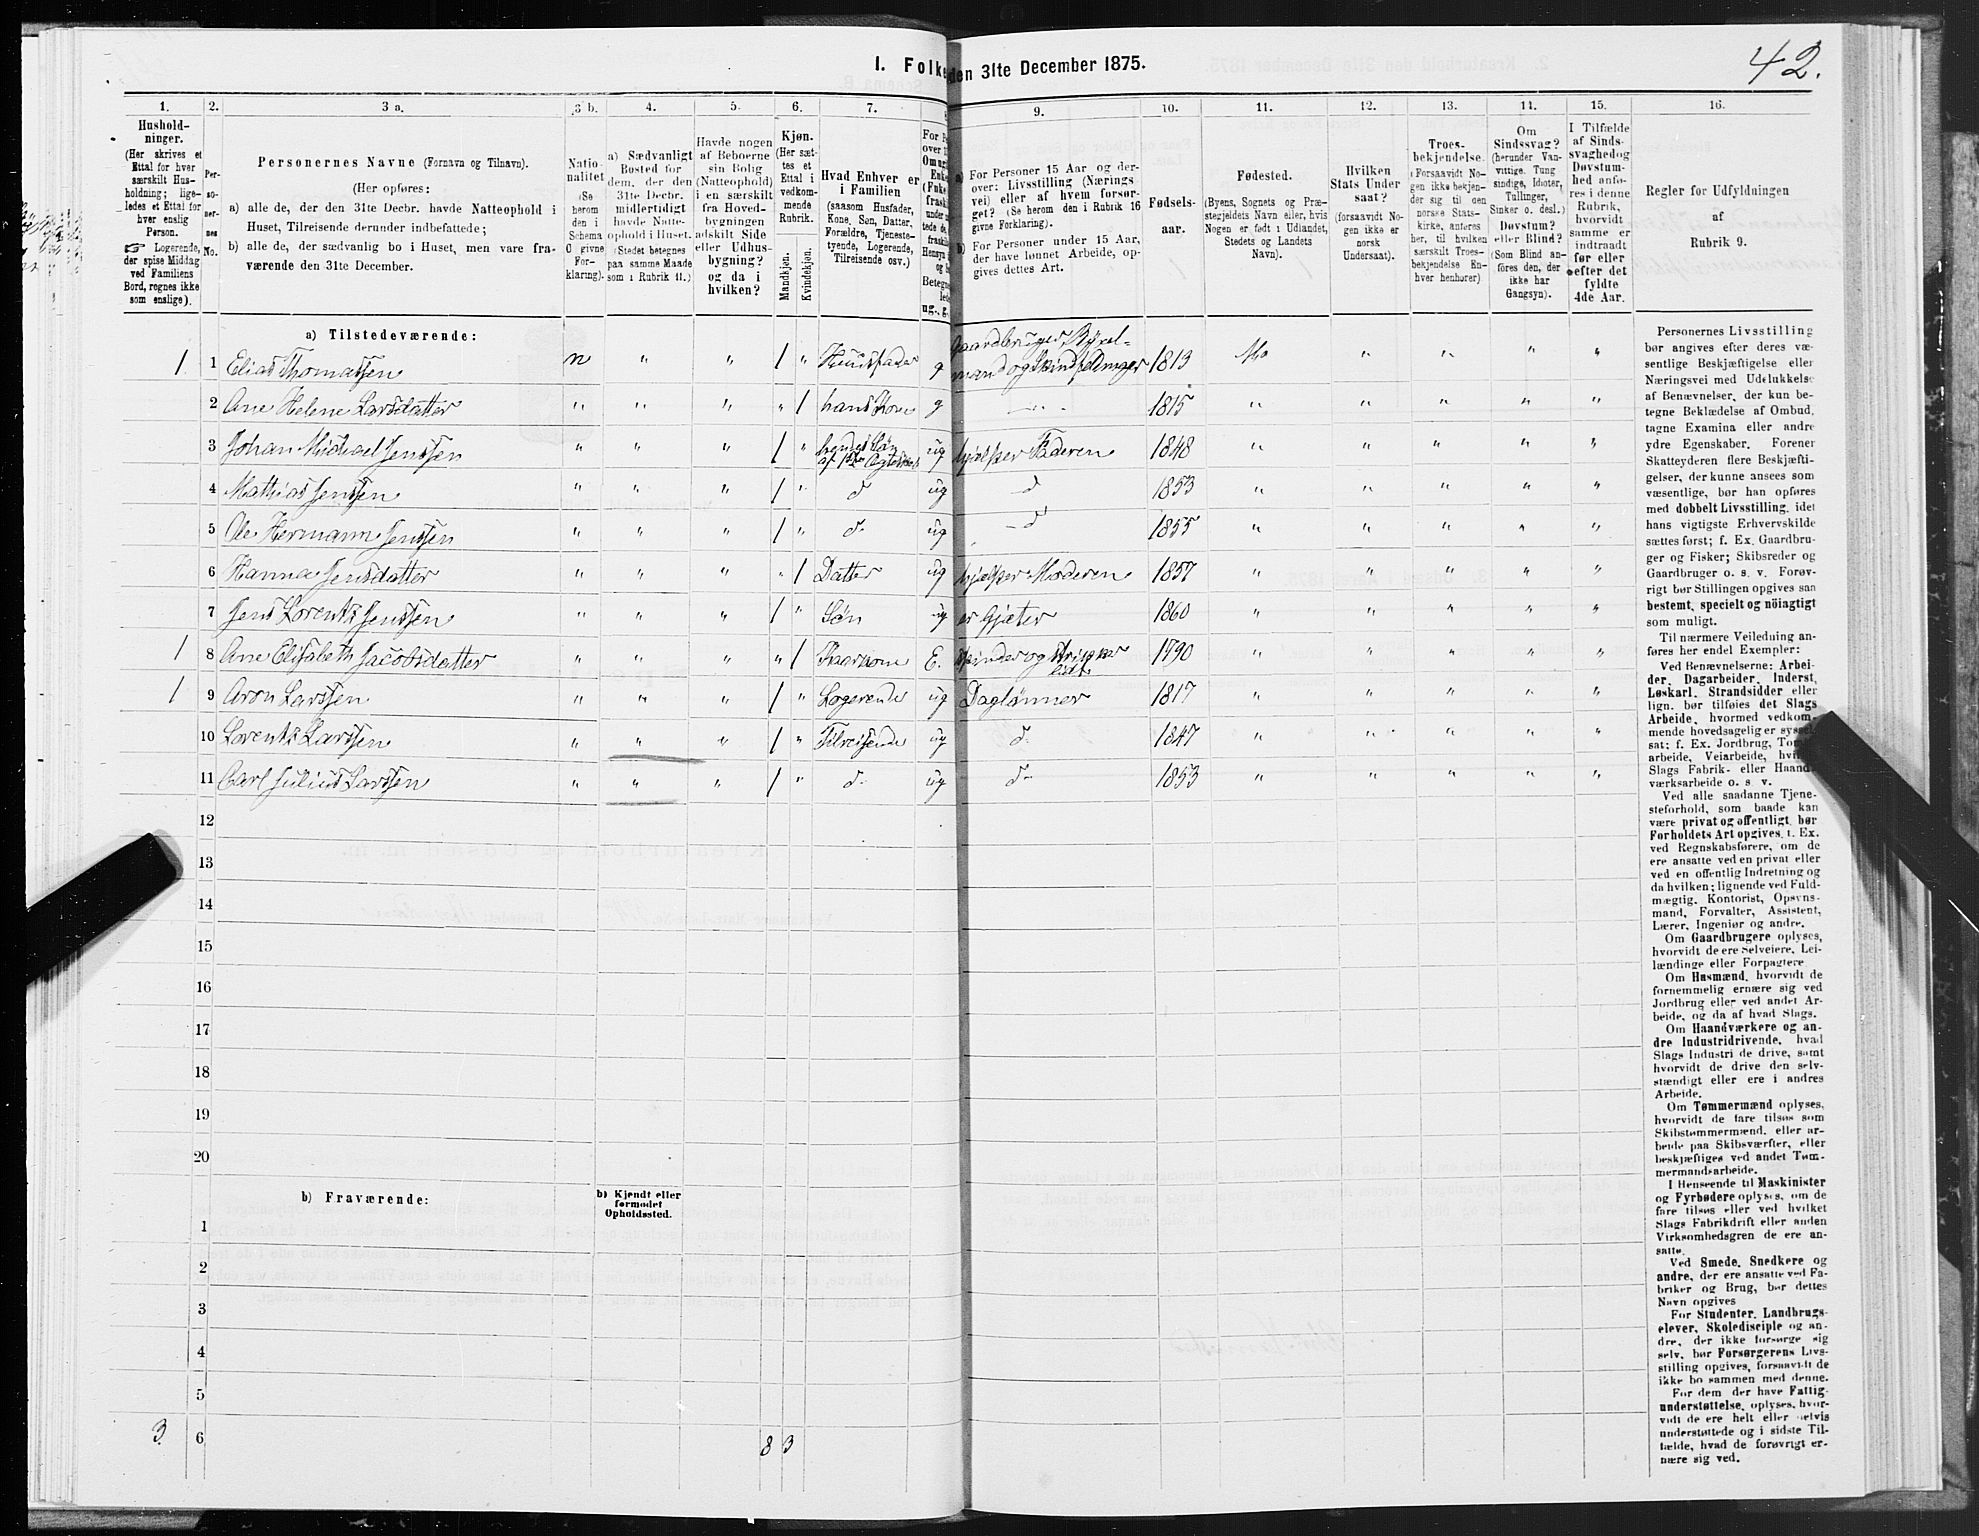 42.
I. Folke
den 31te December 1875.
1. 2. 3 a. 3 b. 4. 5. 6. 7.
9. 10. 11. 12. 13. 14. 15. 16.
Hushold-
ninger.
(Her skrives et
Ettal for hver
særskilt Hus-
holdning; lige-
ledes et Ettal for
hver enslig
Person.
☞ Logerende,
der spise Middag
ved Familiens
Bord, regnes ikke
som enslige).
Per-
so-
ner-
nes
No.
Personernes Navne (Fornavn og Tilnavn).
(Her opføres:
a) alle de, der den 31te Decbr. havde Natteophold i
Huset, Tilreisende derunder indbefattede;
b) alle de, der sædvanlig bo i Huset, men vare fra-
værende den 31te December.
Natio-
nalitet
(Se
herom
den i
Schema
O givne
For-
klaring).
a) Sædvanligt
Bosted for
dem, der den
31te Decbr.
midlertidigt
havde Natte-
ophold i Huset.
(Stedet betegnes
paa samme Maade
som i Rubrik 11.)
Havde nogen
af Beboerne
sin Bolig
(Natteophold)
i en særskilt
fra Hoved-
bygningen
adskilt Side
eller Udhus-
bygning?
og da i
hvilken?
Kjøn.
(Her sæt-
tes et
Ettal i
vedkom-
mende
Rubrik.
Mandkjøn.
Kvindekjøn.
Hvad Enhver er
i Familien
(saasom Husfader,
Kone, Søn, Datter,
Forældre, Tjeneste-
tyende, Logerende,
Tilreisende osv.)
a) For Personer 15 Aar og der-
over: Livsstilling (Nærings
vei) eller af hvem forsør-
get? (Se herom den i Rubrik 16
givne Forklaring).
b) For Personer under 15 Aar,
der have lønnet Arbeide, op-
gives dettes Art.
Fødsels-
aar.
Fødested.
(Byens, Sognets og Præ-
stegjeldets Navn eller, hvis
Nogen er født i Udlandet,
Stedets og Landets
Navn).
Hvilken
Stats Under
saat?
(forsaavidt No-
gen ikke er
norsk
Undersaat).
Troes-
bekjendelse.
(Forsaavidt No-
gen ikke bekjen-
der sig til den
norske Stats-
kirke, anføres
her, til hvilken
særskilt Troes-
bekjendelse En-
hver henhører)
Om
Sindssvag?
(herunder Van-
vittige, Tung
sindige, Idioter,
Tullinger,
Sinker o. desl.)
Døvstum?
eller Blind?
(Som Blind an-
føres den, der
ikke har
Gangsyn).
I Tilfælde
af Sinds-
svaghedog
Døvstum-
hed anfø-
res i denne
Rubrik,
hvorvidt
samme er
indtraadt
før eller
efter det
fyldte
4de Aar.
Regler for Udfyldningen
af
Rubrik 9.
a) Tilstedeværende:
1 1 Elias Thomassen n " " 1 " Huusfader g Gaardbruger, Byxel-
mand og Skindfeldmager 1813 Mo " " " "
2 Ane Helene Larsdatter " " " " 1 hans Kone g 1815 " " " " "
3 Johan Michael Jenssen " " " 1 " hendes Søn
af 1ste Ægteskab ug hjælper Faderen 1848 " " " " "
4 Mathias Jenssen " " " 1 " d ug d 1853 " " " " "
5 Ole Hermann Jenssen " " " 1 " d ug d 1855 " " " " "
6 Hanna Jensdatter " " " " 1 Datter ug hjælper Moderen 1857 " " " " "
7 Jens Lorents Jenssen " " " 1 " Søn ug er Gjæter 1860 " " " " "
1 8 Ane Elisabeth Jacobsdatter " " " " 1 Kaarkone E. spinder og strikker
lidt 1790 " " " " "
1 9 Aron Larssen " " " 1 " Logerende ug Daglønner 1817 " " " " "
10 Lorents Larssen " " " 1 " Tilreisende ug d. 1847 " " " " "
11 Carl Julius Larssen " " " 1 " d ug d 1853 " " " " "
12
13
14
15
16
17
18
19
20
b) Fraværende:
b) Kjendt eller
formodet
Opholdssted.
1
2
3
4
5
3. 6 8 3
Personernes Livsstilling
bør angives efter deres væ-
sentlige Beskjæftigelse eller
Næringsvei med Udelukkelse
af Benævnelser, der kun be-
tegne Beklædelse af Ombud,
tagne Examina eller andre
ydre Egenskaber. Forener
Skatteyderen flere Beskjæfti-
gelser, der kunne ansees som
væsentlige, bør han opføres
med dobbelt Livsstilling, idet
hans vigtigste Erhvervskilde
sættes først; f. Ex. Gaardbru-
ger og Fisker; Skibsreder og
Gaardbruger o. s. v. Forøv-
rigt bør Stillingen opgives saa
bestemt, specielt og nöiagtigt
som muligt.
Til nærmere Veiledning an-
føres her endel Exempler:
Ved Benævnelserne: Arbei-
der, Dagarbeider, Inderst,
Løskarl, Strandsidder eller
lign. bør tilføies det Slags
Arbeide, hvormed vedkom-
mende hovedsagelig er syssel
sat; f. Ex. Jordbrug,
arbeide, Veiarbeide,
Slags Fabrik- eller Haand
værksarbeide o. s. v.
Ved alle saadanne Tjene-
steforhold, som baade kan
være privat og offentligt, bør
Forholdets Art opgives, t. Ex.
ved Regnskabsførere, om de
ere ansatte ved en privat eller
ved en offentlig Indretning og
da hvilken; lignende ved Fuld-
mægtig, Kontorist, Opsyns-
mand, Forvalter, Assistent,
Lærer, Ingeniør og andre.
Om Gaardbrugere oplyses,
hvorvidt de ere Selveiere, Lei-
lændinge eller Forpagtere
Om Husmænd, hvorvidt de
fornemmelig ernære sig ved
Jordbrug eller ved andet Ar-
beide, og da af hvad Slags.
Om Haandværkere og an-
dre Industridrivende, hvad
Slags Industri de drive, samt
hvorvidt de drive den selv-
stændigt eller ere i andres
Arbeide.
Om Tømmermænd oplyses,
hvorvidt de fare tilsøs som
Skibstømmermænd, eller ar-
beide paa Skibsværfter, eller
beskjæftiges ved andet Tøm-
mermandsarbeide.
I Henseende til Maskinister
og Fyrbødere oplyses, om de
fare tilsøs eller ved hvilket
Slags Fabrikdrift eller anden
Virksomhedsgren de ere an-
satte.
Ved Smede, Snedkere og
andre, der ere ansatte ved Fa-
briker og Brug, bør dettes
Navn opgives
For Studenter, Landbrugs-
elever, Skoledisciple og an-
dre, der ikke forsørge sig
selv, bør Forsørgerens Livs-
stilling opgives, forsaavidt de
ikke bo sammen med denne.
For dem der have Fattig-
understøttelse, oplyses, hvor-
vidt de ere helt eller delvis
understøttede og i sidste Til-
fælde, hvad de forøvrigt er-
nære sig ved.